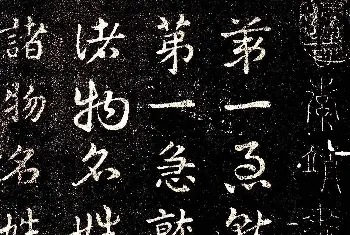 第一急就
第一急就
諸物名姓
諸物名姓